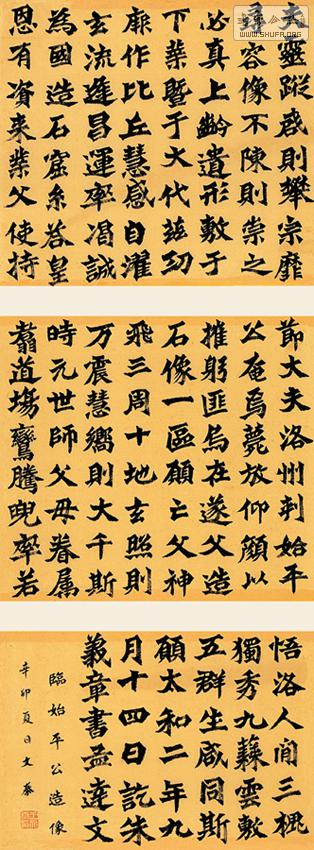 WWW.SHUFA.ORG
夫靈蹤啟則攀宗靡
尋容像不陳則崇之
必真上齡遺形敷于
下葉暨于大代茲功
厥作比丘慧感自濯
玄流邀昌運率渴誠
為國造石窟糸荅皇
恩有資来業父使持
節大夫洛州刺始平
公奄焉薨放仰顏以
摧躬匪烏在遂父造
石像一區願亡父神
飛三周十地玄照則
万震慧嚮則大千斯
時元世師父母眷属
翥道場鸞騰兜率若
悟洛人間三槐
獨秀九蕀雲敷
五群生咸同斯
願太和二年九
月十四日訖朱
義章書孟達文
臨始平公造像
辛卯夏日文